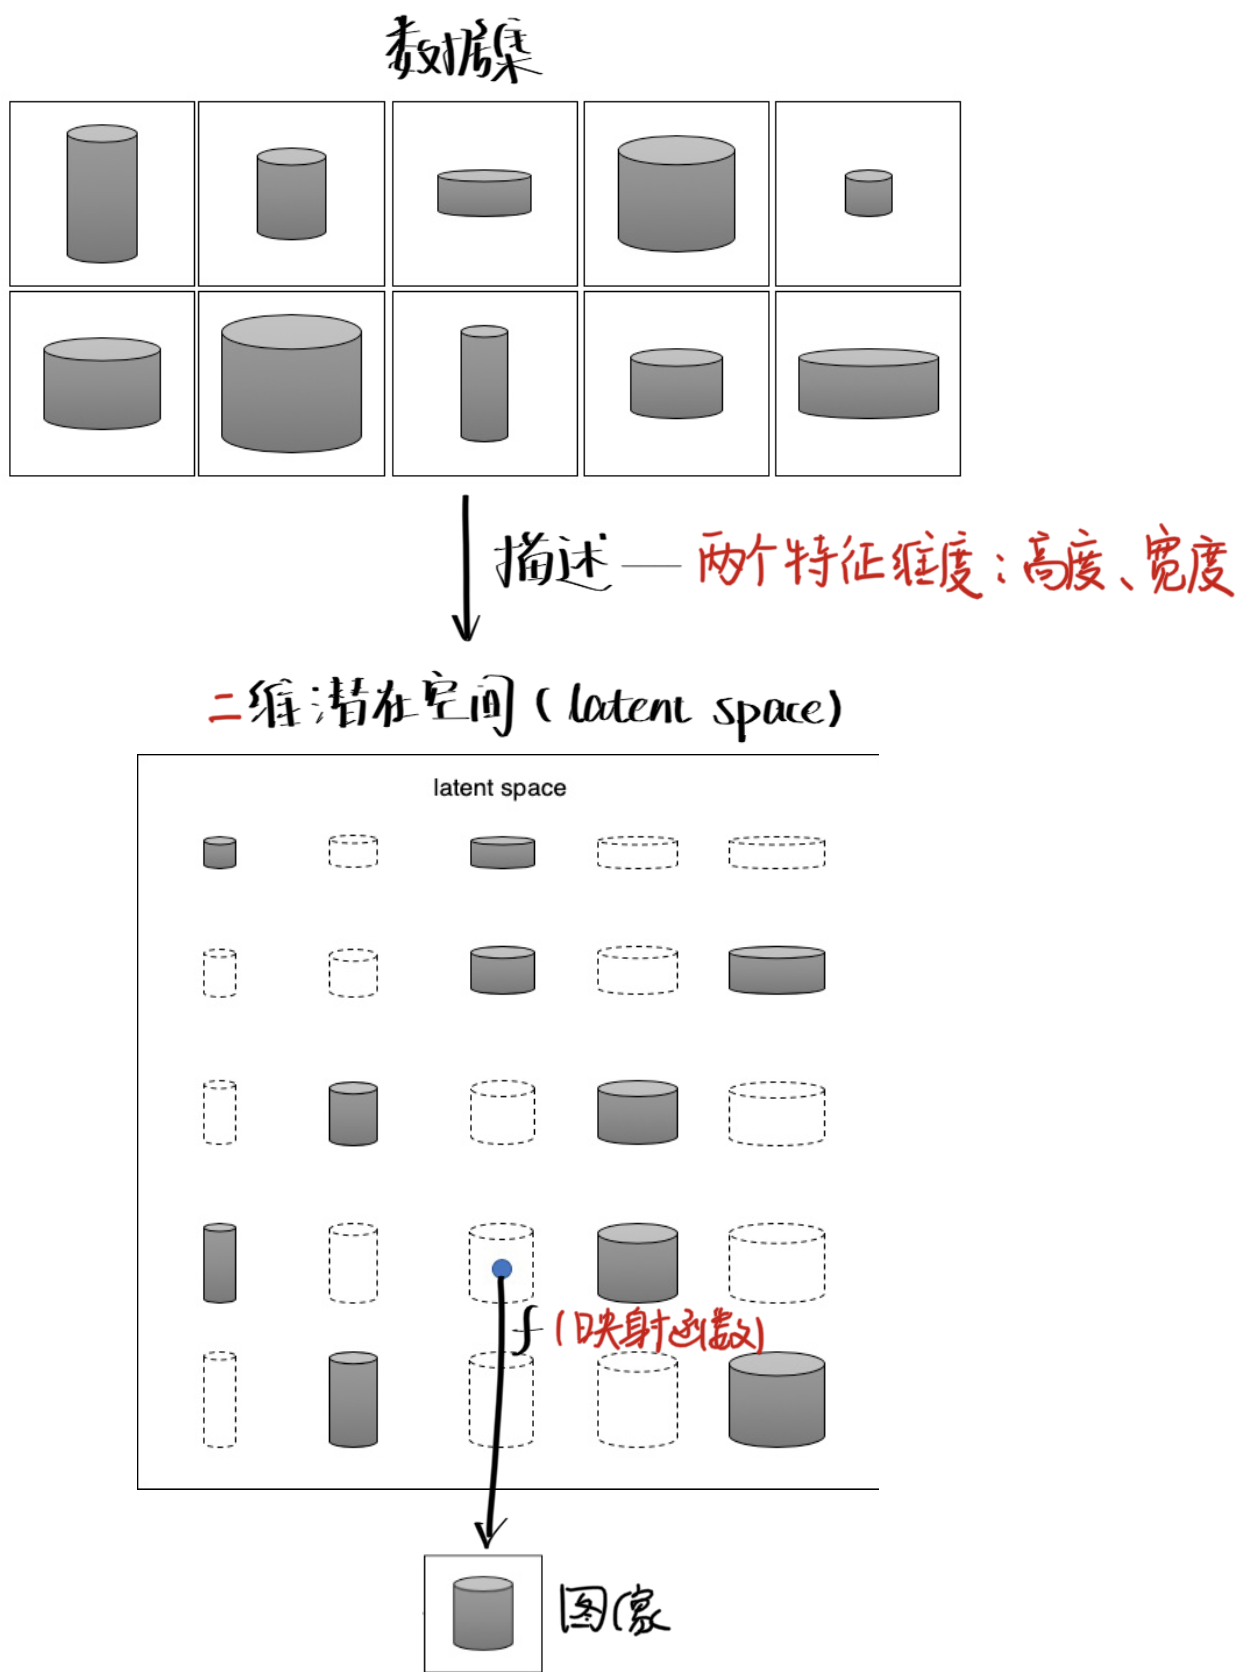 数据集
描述 — 两个特征维度：高度、宽度
二维潜在空间（latent space）
latent space
f（映射函数）
图像